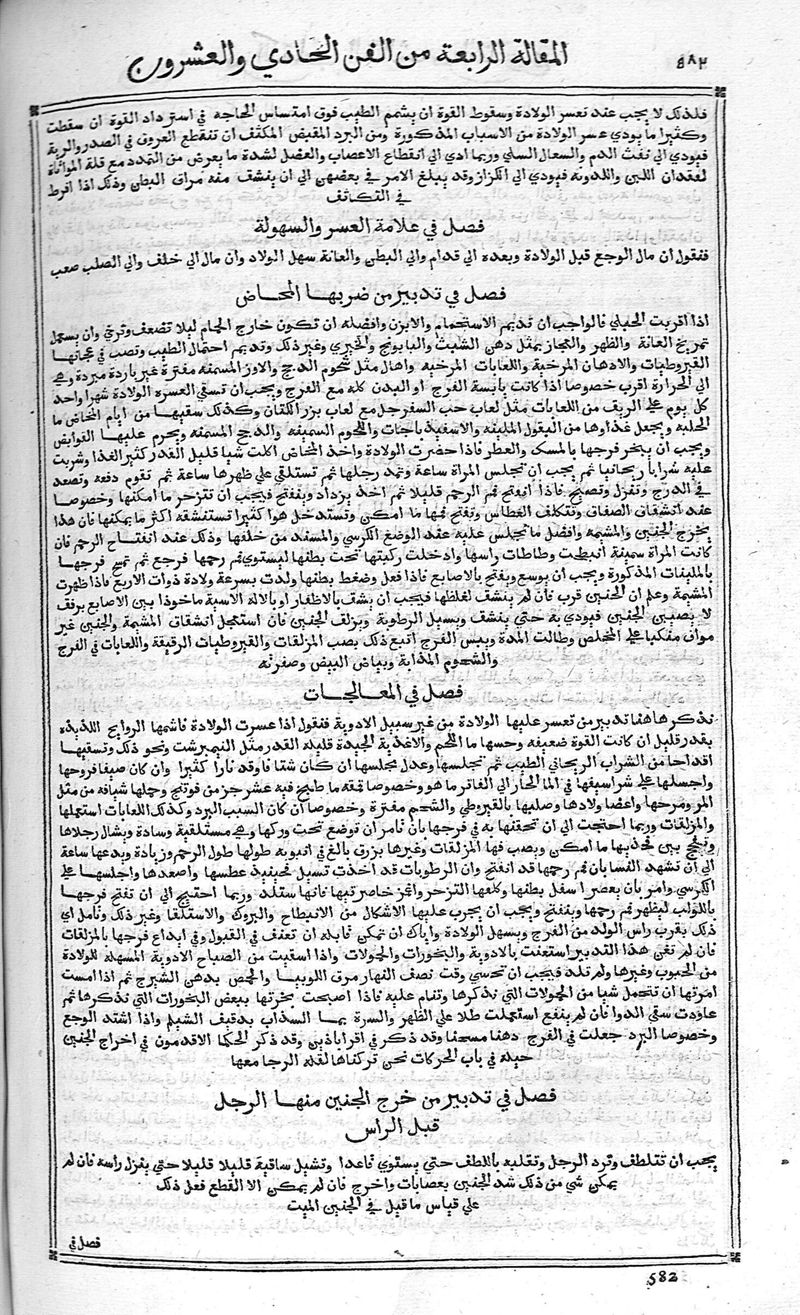 ٥٨٢
المقالة الرابعة من الفن الحادي والعشرون
فلذلك لا يجب عند تعسر الولادة وسقوط القوة ان يشمم الطيب فوق امتساس الحاجه في استرداد القوة ان سقطت
وكثيرا ما يودي عسر الولادة من الاسباب المذكورة ومن البرد المقبض المكثف ان تنقطع العروق في الصدر والرية
فيودي الى نفث الدم والسعال السلي وربما ادى الى انقطاع الاعصاب والعضل لشدة ما يعرض من التمدد مع قلة المواتاة
لفقدان اللين واللدونه فيودي الى الكزاز وقد يبلغ الامر في بعضهن الى ان ينشف منه مراق البطن وذلك اذا افرط
في التكاثف
فصل في علامة العسر والسهولة
فنقول ان مال الوجع قبل الولادة وبعده الى قدام والى البطن والعانة سهل الولاد وان مال الى خلف والى الصلب صعب
فصل في تدبير من ضربها المخاض
اذا اقربت الحبلي فالواجب ان تديم الاستحمام والابزن وافضله ان تكون خارج الحمام ليلا تضعف وترخي وان يستعمل
تمريخ العانة والظهر والعجاز بمثل دهن الشبث والبابونج والخيري وغير ذلك وتديم احتمال الطيب وتصب في عجانها
القيروطيات والادهان المرخية واللعابات المرخيه واهال مثل شحوم الدجج والاوز المسمنه مفترة غير باردة مبردة وهي
الى الحرارة اقرب خصوصا اذا كانت يابسة الفرج او البدن كله مع الفرج ويجب ان تسقي العسره الولادة شهرا واحد
كل يوم على الريف من اللعابات مثل لعاب حب السفرجل مع لعاب بزر الكتان وكذلك سقيها من ايام المخاض ما
الحلبه ويجعل غذاوها من البقول الملينه والاسفيذباجات واللحوم السمينه والدجج المسمنه ويحرم عليها القوابض
ويجب ان يبخر فرجها بالمسك والعطر فاذا حضرت الولادة واخذ المخاض اكلت شيا قليل القدر كثير الغذا وشربت
عليه شرابا ريحانيا ثم يجب ان تجلس المراة ساعة وتمد رجلها ثم تستلقي علي ظهرها ساعة ثم تقوم دفعه وتصعد
في الدرج وتنزل وتصيح فاذا انفتح فم الرحم قليلا ثم اخذ يزداد وينفتح فيجب ان تتزحر ما امكنها وخصوصا
عند انشقاق الصفاق وتتكلف العطاس وتفتح فمها ما امكن وتستدخل هوا كثيرا تستنشقه اكثر ما يمكنها فان هذا
يخرج الجنين والمشيمه وافضل ما تجلس عليه عند الوضع الكرسي والمسند من خلفها وذلك عند انفتاح الرحم فان
كانت المراة سمينة انبطت وطاطات راسها وادخلت ركبتها تحت بطنها ليستوي فم رحمها فرجع ثم تمرخ فرجها
بالملينات المذكورة ويجب ان يوسع ويفتح بالاصابع فاذا فعل وضغط بطنها ولدت بسرعة ولادة ذوات الاربع فاذا ظهرت
المشيمة وعلم ان الجنين قرب فان لم ينشف لغلظها فيجب ان يشف بالاظفار او بالالة الاسية ماخوذا بين الاصابع برفق
لا يصيبن الجنين فيودي به حتي ينشف ويسيل الرطوبة ويزلف الجنين فان استعجل انشقاق المشيمة والجنين غير
مواف منكبا على المخلص وطالت المدة ويبس الفرج اتبع ذلك بصب المزلقات والقيروطيات الرقيقة واللعابات في الفرج
والشحوم المذابة وبياض البيض وصفرته
فصل في المعالجات
نذكرها هنا تدبير من تعسر عليها الولادة من غير سبيل الادوية فنقول اذا عسرت الولادة فاشمها الروايح اللذيذه
بقدر قليل ان كانت القوة ضعيفه وحسها ما اللحم والاغذية الجيدة قليله القدر مثل النيمبرشت ونحو ذلك وتسقيها
اقداحا من الشراب الريحاني الطيب ثم تجلسها وعدل مجلسها ان كان شتا فاوقد نارا كثيرا وان كان صيفا فروحها
واجسلها على شراسيفها في الما الحار الى الفاتر ما هو وخصوصا بقمقمه ما طبيخ فيه عشر جز من فوتنج وحملها شيافه من مثل
المر ومرخها واعضا ولادها وصلبها بالقيروطي والشحم مفترة وخصوصا ان كان السبب البرد وكذلك اللعابات استعملها
والمزلقات وربما احتجت الى ان تحقنها به في فرجها بان نامر ان توضع تحت وركها وهي مستلقية وسادة ويشال رجلاها
وتفحج بين فخذيها ما امكن ويصب فيها المزلقات وغيرها بزرق بالغ في انبوبه طولها طول الرحم وزيادة ويدعها ساعة
الى ان تشهد النفسا بان فم رحمها قد انفتح وان الرطوبات قد اخذت تسيل فحينيذ عطسها واصعدها واجلسها على
الكرسي وامر بان يعصر اسفل بطنها وكلفها التزحر واغمز خاصرتيها فانها ستلد وربما احتيج الى ان تفتح فرجها
باللولب ليظهر فم رحمها وينفتح ويجب ان يجرب عليها الاشكال من الانبطاح والبروك والاستلقا وغير ذلك وتامل اي
ذلك يقرب راس الولد من الفرج ويسهل الولادة واياك ان تمكن قابله ان تعنف في القبول وفي ابداع فرجها بالمزلقات
فان لم تغن هذا التدبير استعنت بالادوية والبخورات والحمولات واذا اسقيت من الصباح الادوية المسهله للولادة
من الحبوب وغيرها ولم تلد فيجب ان تحسي وقت نصف النهار مرق اللوبيا والحمص بدهن الشيرج ثم اذا امست
امرتها ان تتحمل شيا من الحمولات التي نذكرها وتنام عليه فاذا اصبحت بخرتها ببعض البخورات التي نذكرها ثم
عاودت سقي الدوا فان لم ينفع استعملت طلا علي الظهر والسرة بما السذاب بدقيف الشيلم واذا اشتد الوجع
وخصوصا البرد جعلت في الفرج دهنا مسخنا وقد ذكر في اقراباذين وقد ذكر الحكما الاقدمون في اخراج الجنين
حيله في باب الحركات نحن تركناها لقله الرجا معها
فصل في تدبير من خرج الجنين منها الرجل
قبل الراس
يجب ان تتلطف وترد الرجل وتقلبه باللطف حتي يستوي قاعدا وتشيل ساقية قليلا قليلا حتي ينزل راسه فان لم
يمكن شي من ذلك شد الجنين بعصابات واخرج فان لم يمكن الا القطع فعل ذلك
علي قياس ما قيل في الجنين الميت
فصل في
582